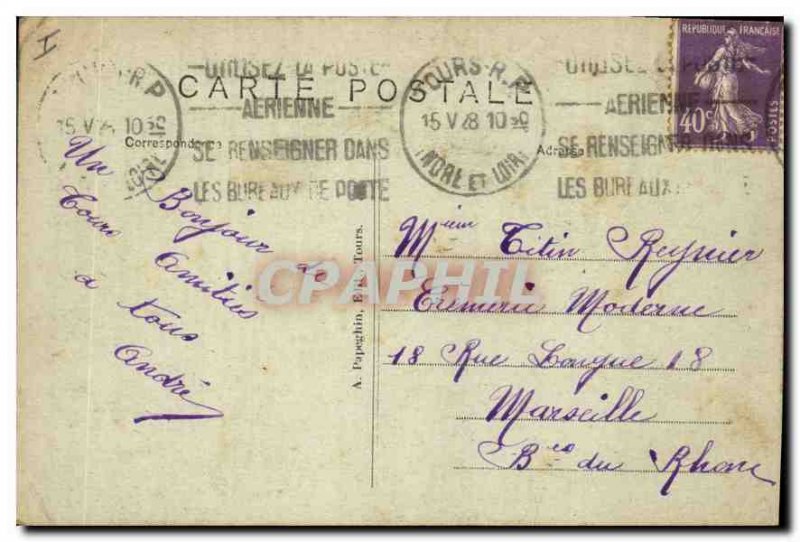 I
CARTE POSTALE
Correspondance
Adresse
UTILISEZ LA POSTE
AERIENNE
SE RENSEIGNER DANS
LES BUREAUX DE POSTE
TOURS R.P
15 V 28 10 30
INDRE ET LOIRE
UTILISEZ LA POSTE
AERIENNE
SE RENSEIGNER DANS
LES BUREAUX
R.P
15 V 28 10 30
REPUBLIQUE FRANÇAISE
40c
POSTES
Un Bonjour de
Tours Amitiés
a tous
André
A. Papeghin, Edit. Tours.
CPAPHIL
Titin Reynier
Cremerie Moderne
18 Rue Longue 18
Marseille
Bces du Rhone